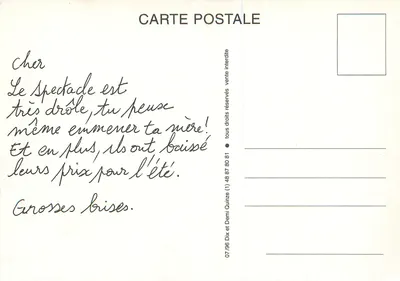 CARTE POSTALE
Cher
Le spectacle est
très drôle, tu peux
même emmener ta mère!
Et en plus, ils ont baissé
leurs prix pour l'été.
Grosses bises.
07/96 Dix et Demi Quinze (1) 48 87 80 81 ● tous droits réservés vente interdite